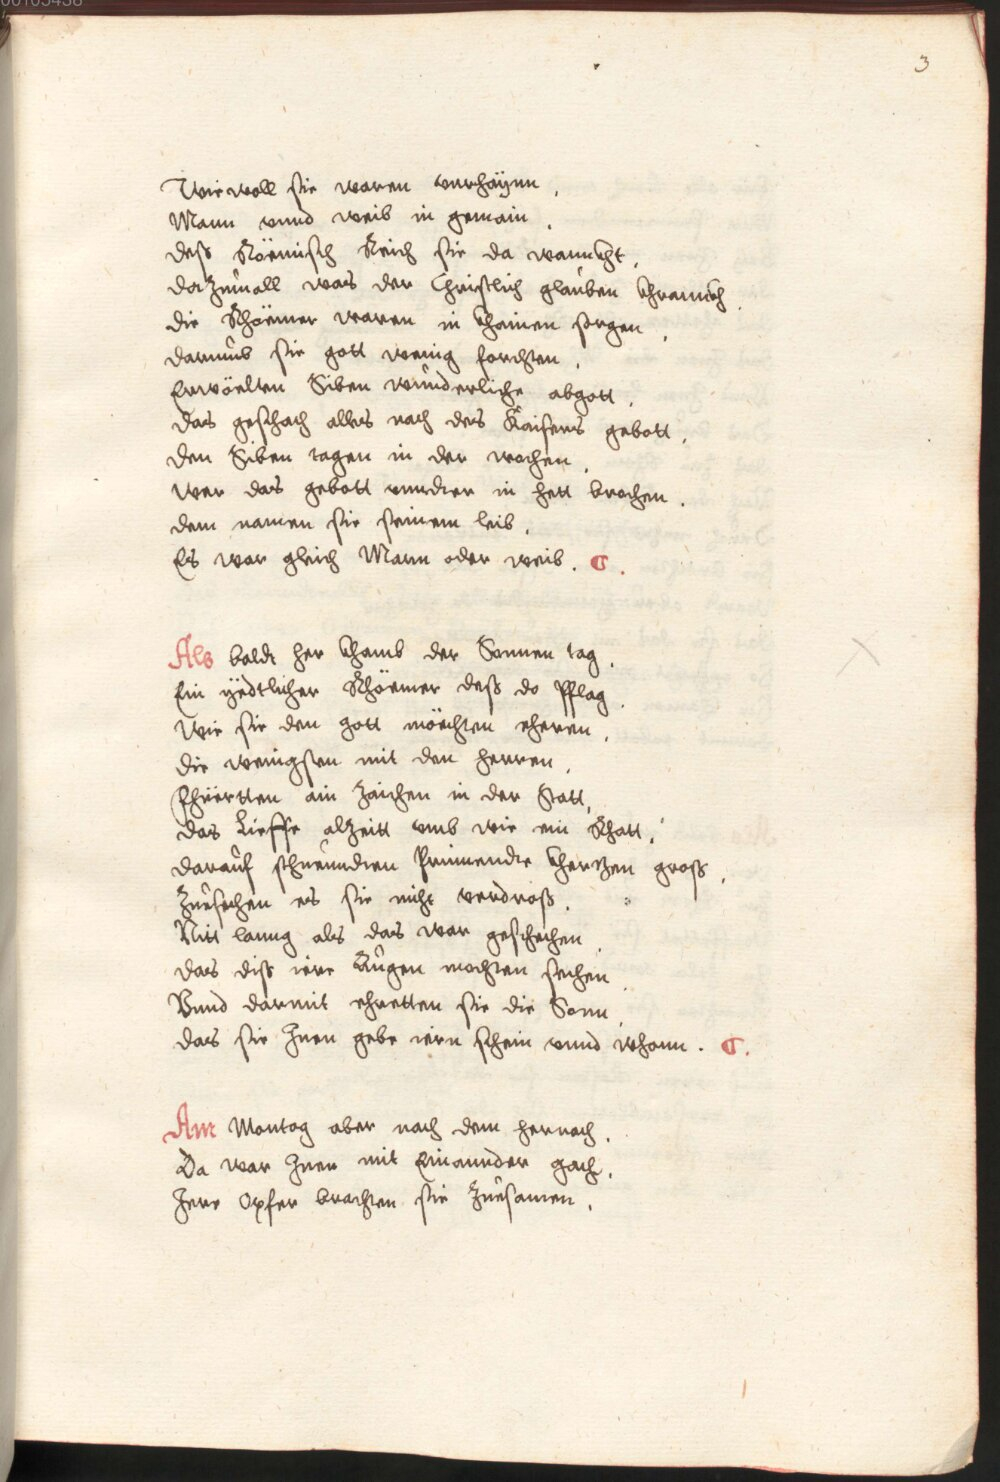 3
Wie woll sie waren vnrhaÿnn .
Mann vnnd weib in gemain .
deß Röemisch Reich sie da wannckht .
da Zumall was der Christlich glauben khrannckh .
die Rhöemer waren in khainen sorgen .
darumb sie gott wenig forchten .
Erwöelten Siben wunderliche abgott .
das geschach alles nach des Kaisers gebott .
den Siben tagen in der wochen .
wer das gebott vnnder in hett brochen .
dem namen sie seinem leib .
Es war gleich Mann oder weib .
Als baldt her khamb der Sonnen tag .
Ein ÿedtlicher Rhöemer deß do Pflag .
Wie sie den gott möchten eheren .
die wenigsten mit den herren .
Fhüertten ain Zaichen in der Statt .
das Lieffe alZeitt vmb wie ein Rhatt .
darauf schneunden Prinnendte khertzen groß .
Zuesechen es sie nicht verdroß .
Nitt lanng als das war geschechen .
das diß iere Augen mochten sechen .
Vnnd darmit ehretten sie die Sonn .
das sie Inen gebe iern schein vnnd whonn .
Am Montag aber nach dem hernach .
Da war Inen mit Einannder gach .
Iere Opfer brachten sie Zuesamen .